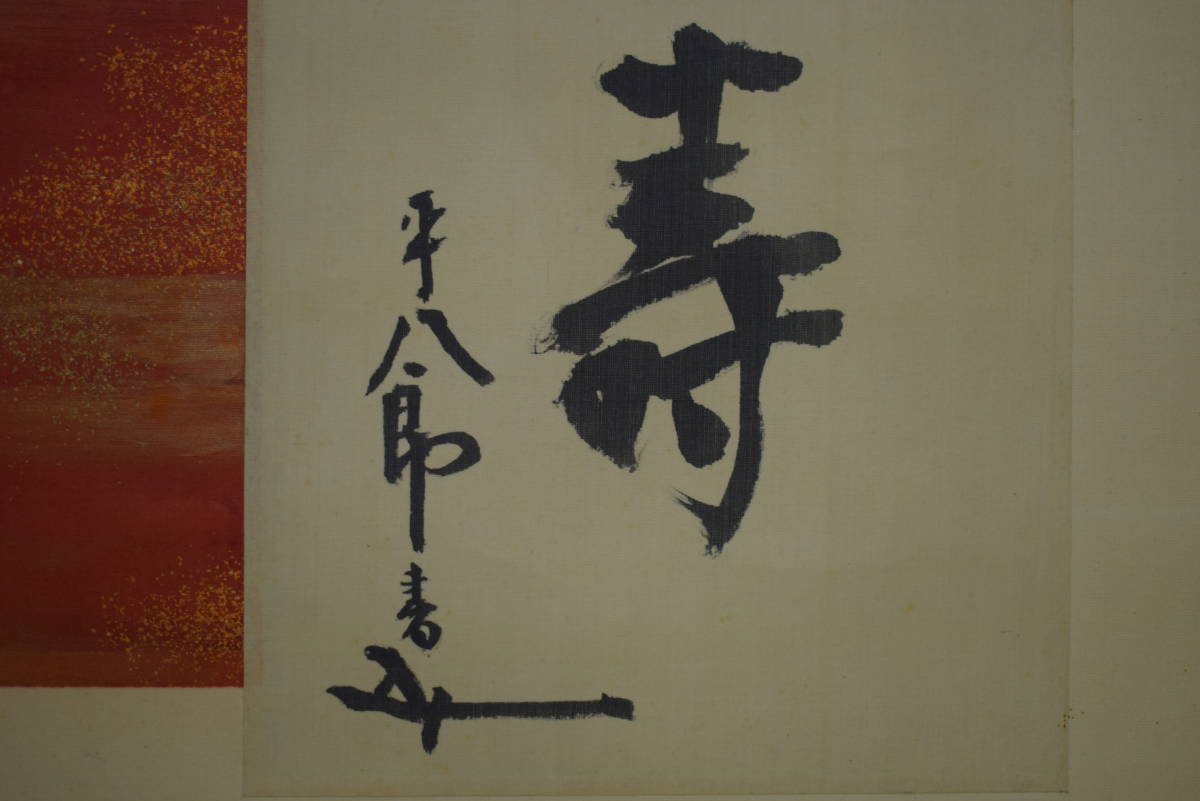 寿
平八郎書